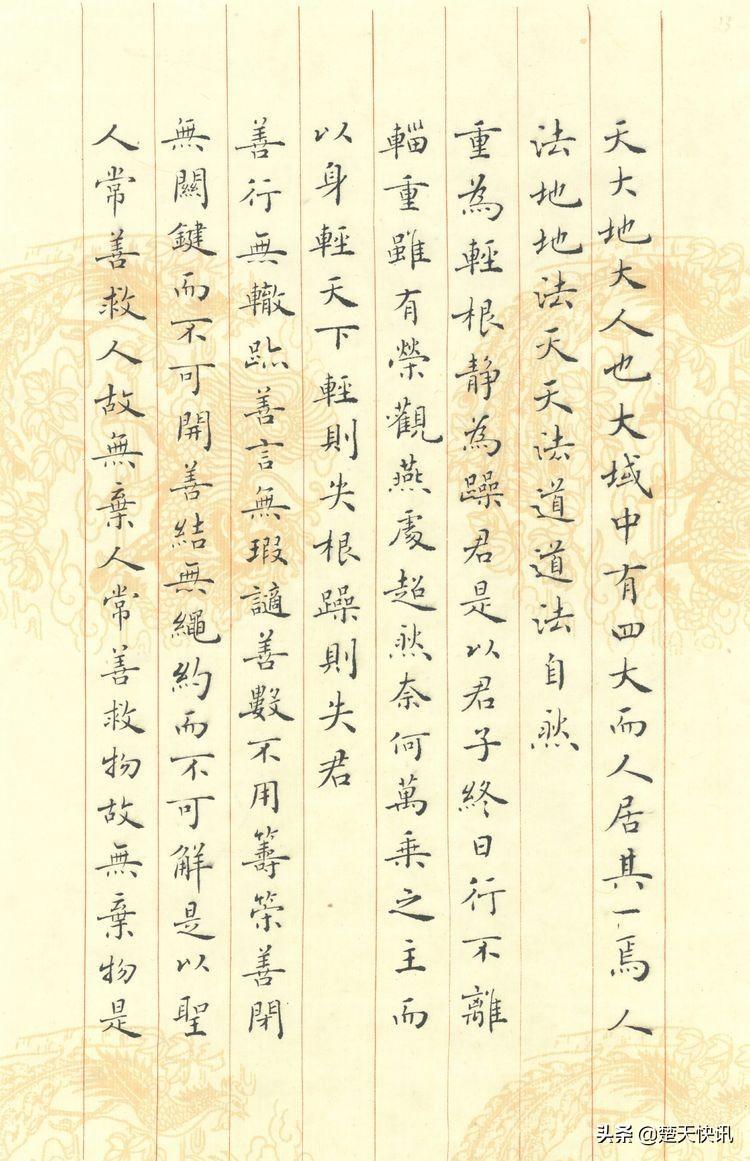 天大地大人也大域中有四大而人居其一焉人
法地地法天天法道道法自然
重為輕根静為躁君是以君子終日行不離
輜重雖有榮觀燕處超然奈何萬乘之主而
以身輕天下輕則失根躁則失君
善行無轍跡善言無瑕謫善數不用籌策善閉
無關鍵而不可開善結無繩約而不可解是以聖
人常善救人故無棄人常善救物故無棄物是
头条 @楚天快讯